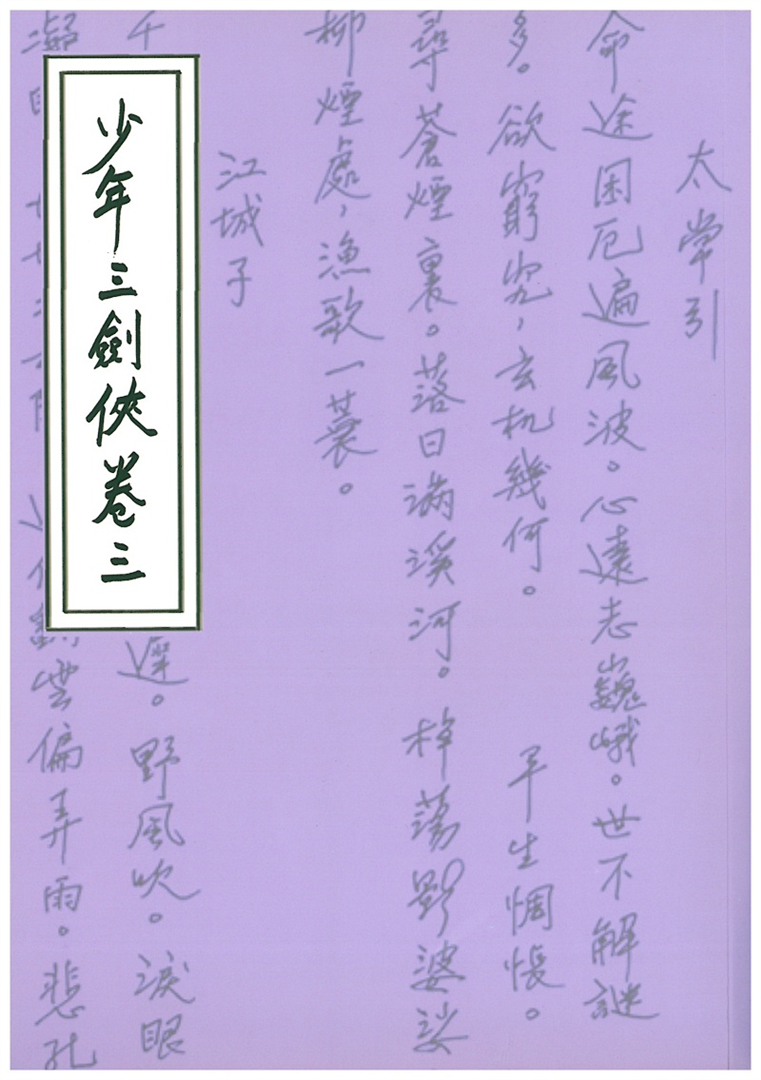 少年三劍俠卷三
太常引
命途困厄遍風波。心遠志巍峨。世不解謎
多。欲窮究,玄机幾何。 平生惆悵。
尋蒼煙裏。落日滿溪河。棹蕩影婆娑
柳煙處,漁歌一蓑。
江城子
遲。野風吹。淚眼
雲偏弄雨。悲